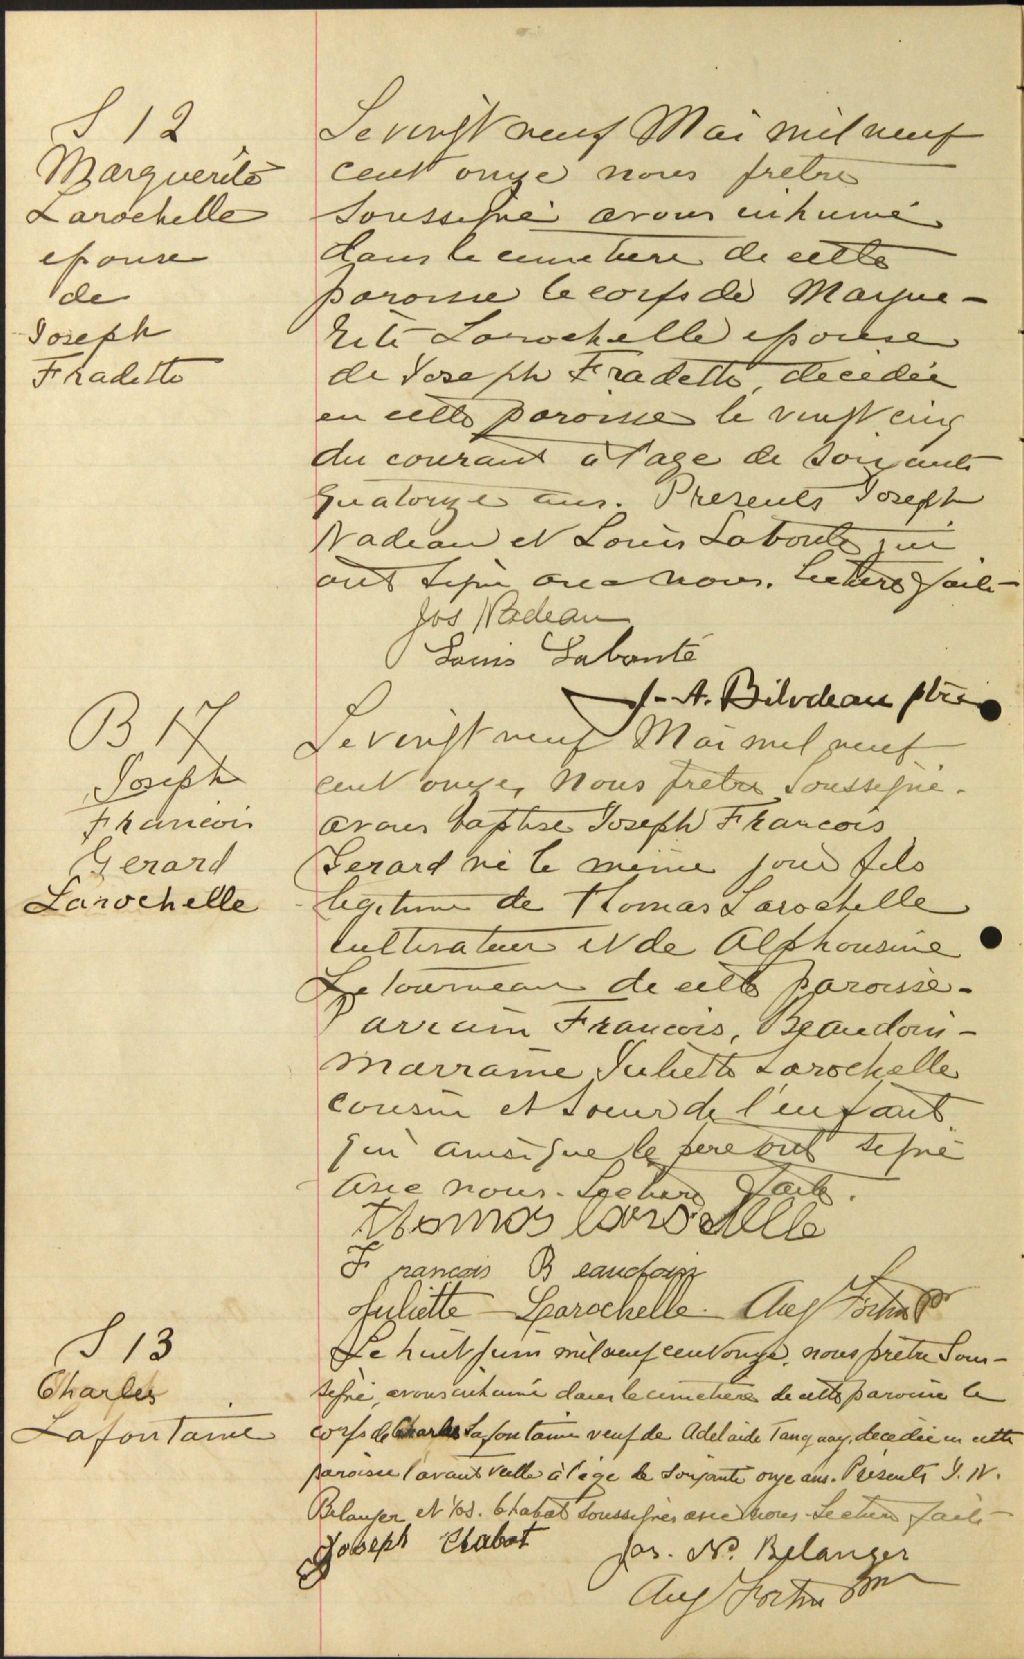 S 12
Marguerite
Larochelle
epouse
de
Joseph
Fradette
Le vingt neuf Mai mil neuf
cent onze nous prêtre
soussigné avons inhumé
dans le cimetiere de cette
paroisse le corps de Margue-
rite Larochelle epouse
de Joseph Fradette, décédée
en cette paroisse le vingt cinq
du courant à l'age de soixante
quatorze ans. Presents Joseph
Nadeau et Louis Labonté qui
ont signé avec nous. Lecture faite
Jos Nadeau
Louis Labonté
J. A. Bilodeau ptre
B 17
Joseph
Francois
Gerard
Larochelle
Le vingt neuf Mai mil neuf
cent onze, nous prêtre soussigné
avons baptisé Joseph Francois
Gerard né le même jour fils
legitime de Thomas Larochelle
cultivateur et de Alphonsine
Letourneau de cette paroisse-
Parrain Francois, Beaudoin-
marraine Juliette Larochelle
cousin et soeur de l'enfant
qui ainsi que le pere ont signé
avec nous. Lecture faite.
Thomas Larochelle
Francois Beaudoin
Juliette Larochelle Aug Fortin Ptr
S 13
Charles
Lafontaine
Le huit juin mil neuf cent onze, nous prêtre sous-
signé, avons inhumé dans le cimetière de cette paroisse le
corps de Charles Lafontaine veuf de Adelaide Tanguay, décédé en cette
paroisse l'avant veille à l'age de soixante onze ans. Présents J. N.
Belanger et Jos. Chabot soussignés avec nous. Lecture faite
Joseph Chabot
Jos. N. Belanger
Aug Fortin